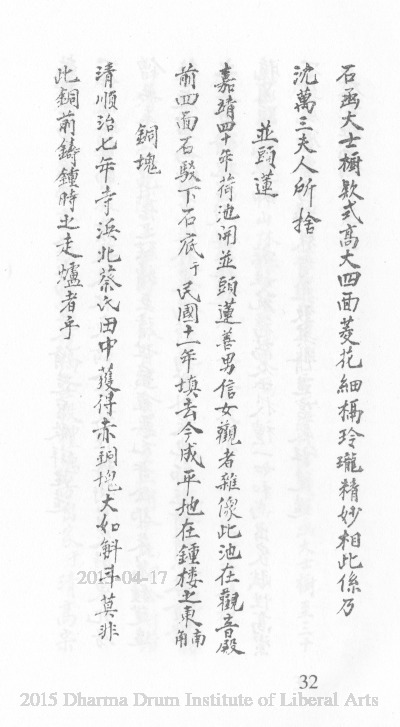 石函大士櫥欵式高大四面菱花細槅玲瓏精妙相此係乃
沈萬三夫人所捨
並頭蓮
嘉靖四十年荷池開並頭蓮善男信女觀者雜像此池在觀音殿
前四面石駁下石底于民國十一年填去今成平地在鍾楼之東南角
銅塊
清順治七年寺浜北蔡氏田中獲得赤銅塊大如斛斗莫非
此銅前鋳鍾時之走爐者乎
2015-04-17
32
2015 Dharma Drum Institute of Liberal Arts